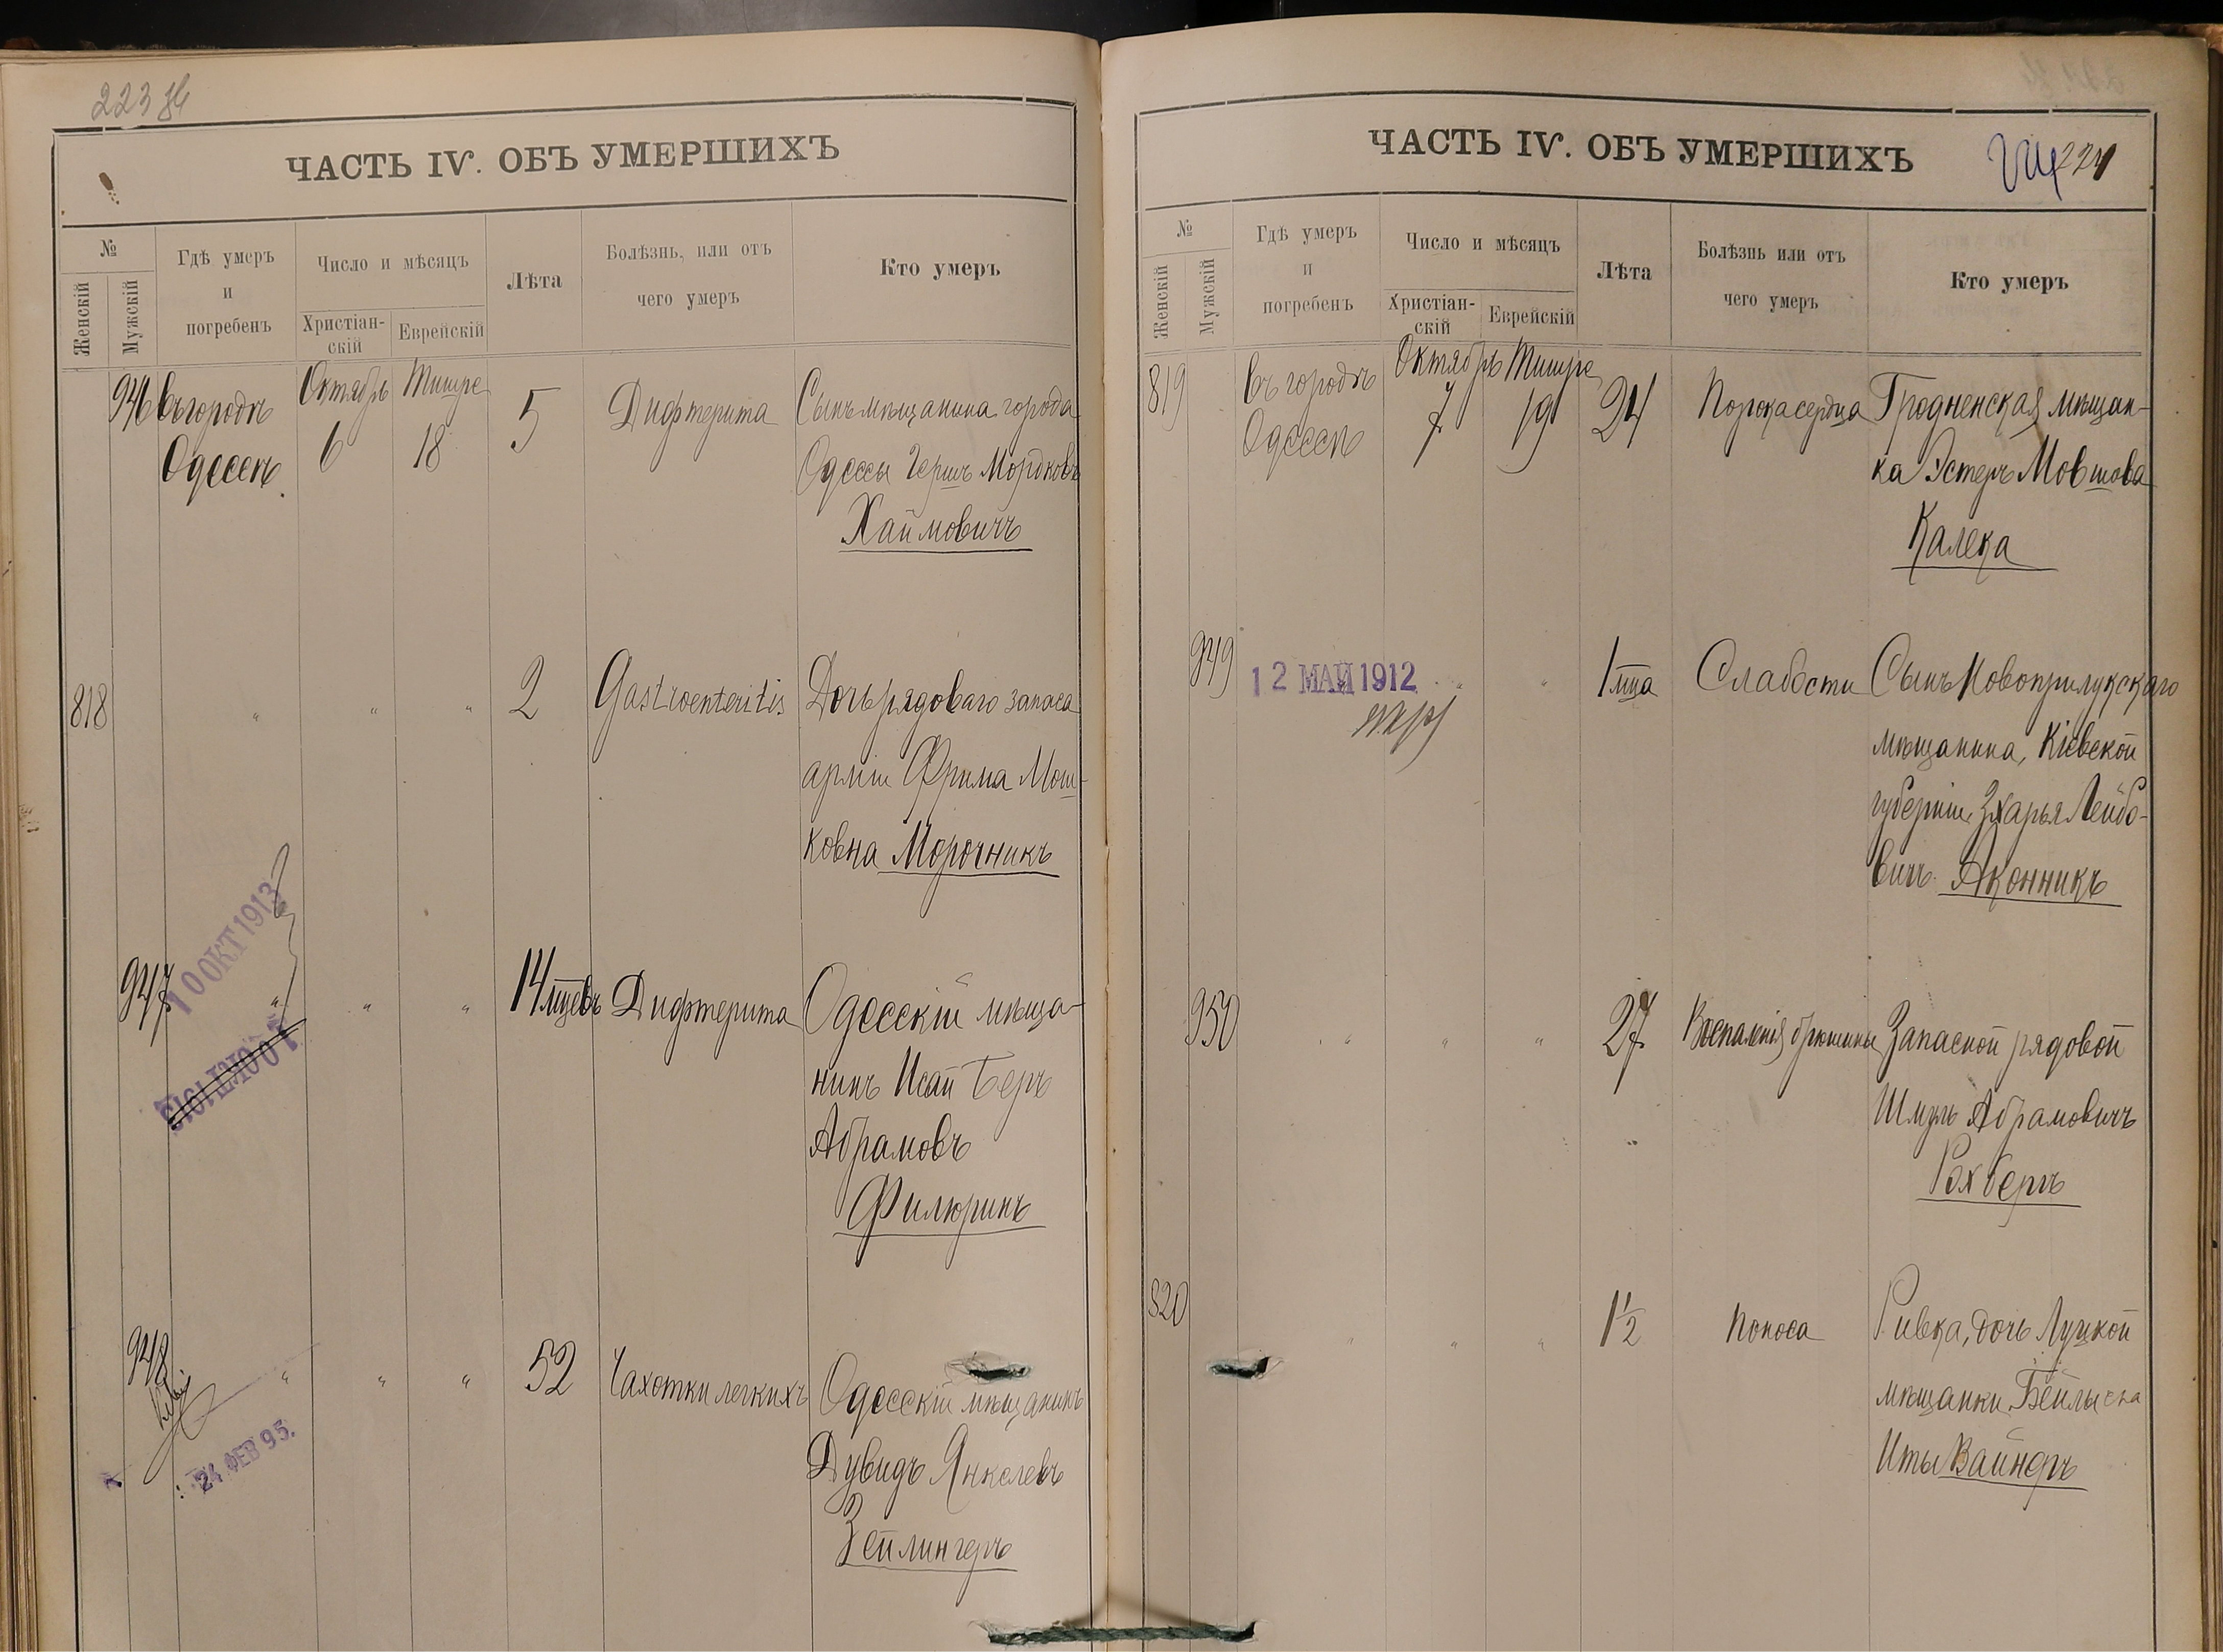 223
ЧАСТЬ IV. ОБЪ УМЕРШИХЪ
№
Женскій
Мужскій
Гдѣ умеръ
и
погребенъ
Число и мѣсяцъ
Христіан-
скій
Еврейскій
Лѣта
Болѣзнь, или отъ
чего умеръ
Кто умеръ
946
въ городѣ
Одессѣ
Октябрь
6
Тишре
18
5
Дифтерита
Сынъ мѣщанина города
Одессы Гершъ Мордковъ
Хаимовичъ
818
"
"
"
2
Gastroenteritis
Дочь рядоваго запаса
арміи Фрима Мош-
ковна Морочникъ
947
10 ОКТ 1913
10 ОКТ 1913
"
"
"
14 мцевъ
Дифтерита
Одесскій мѣща-
нинъ Исай Беръ
Абрамовъ
Филюринъ
948
24 ФЕВ 95.
"
"
"
52
Чахотки легкихъ
Одесскій мѣщанинъ
Дувидъ Янкелевъ
Зейлингеръ
ЧАСТЬ IV. ОБЪ УМЕРШИХЪ
224
№
Женскій
Мужскій
Гдѣ умеръ
и
погребенъ
Число и мѣсяцъ
Христіан-
скій
Еврейскій
Лѣта
Болѣзнь или отъ
чего умеръ
Кто умеръ
819
въ городѣ
Одессѣ
Октябрь
7
Тишре
19
24
Порока сердца
Гродненская мѣщан-
ка Эстеръ Мовшова
Калека
949
12 МАЙ 1912
"
"
1 мца
Слабости
Сынъ Новоприлукскаго
мѣщанина, Кіевской
губерніи Зхарья Лейбо-
вичъ Яконникъ
950
"
"
"
27
Воспаленія брюшины
Запасной рядовой
Шмуль Абрамовичъ
Рохбергъ
820
"
"
"
1 1/2
Поноса
Ривка, дочь Луцкой
мѣщанки Бейлы она
Иты Вайнеръ